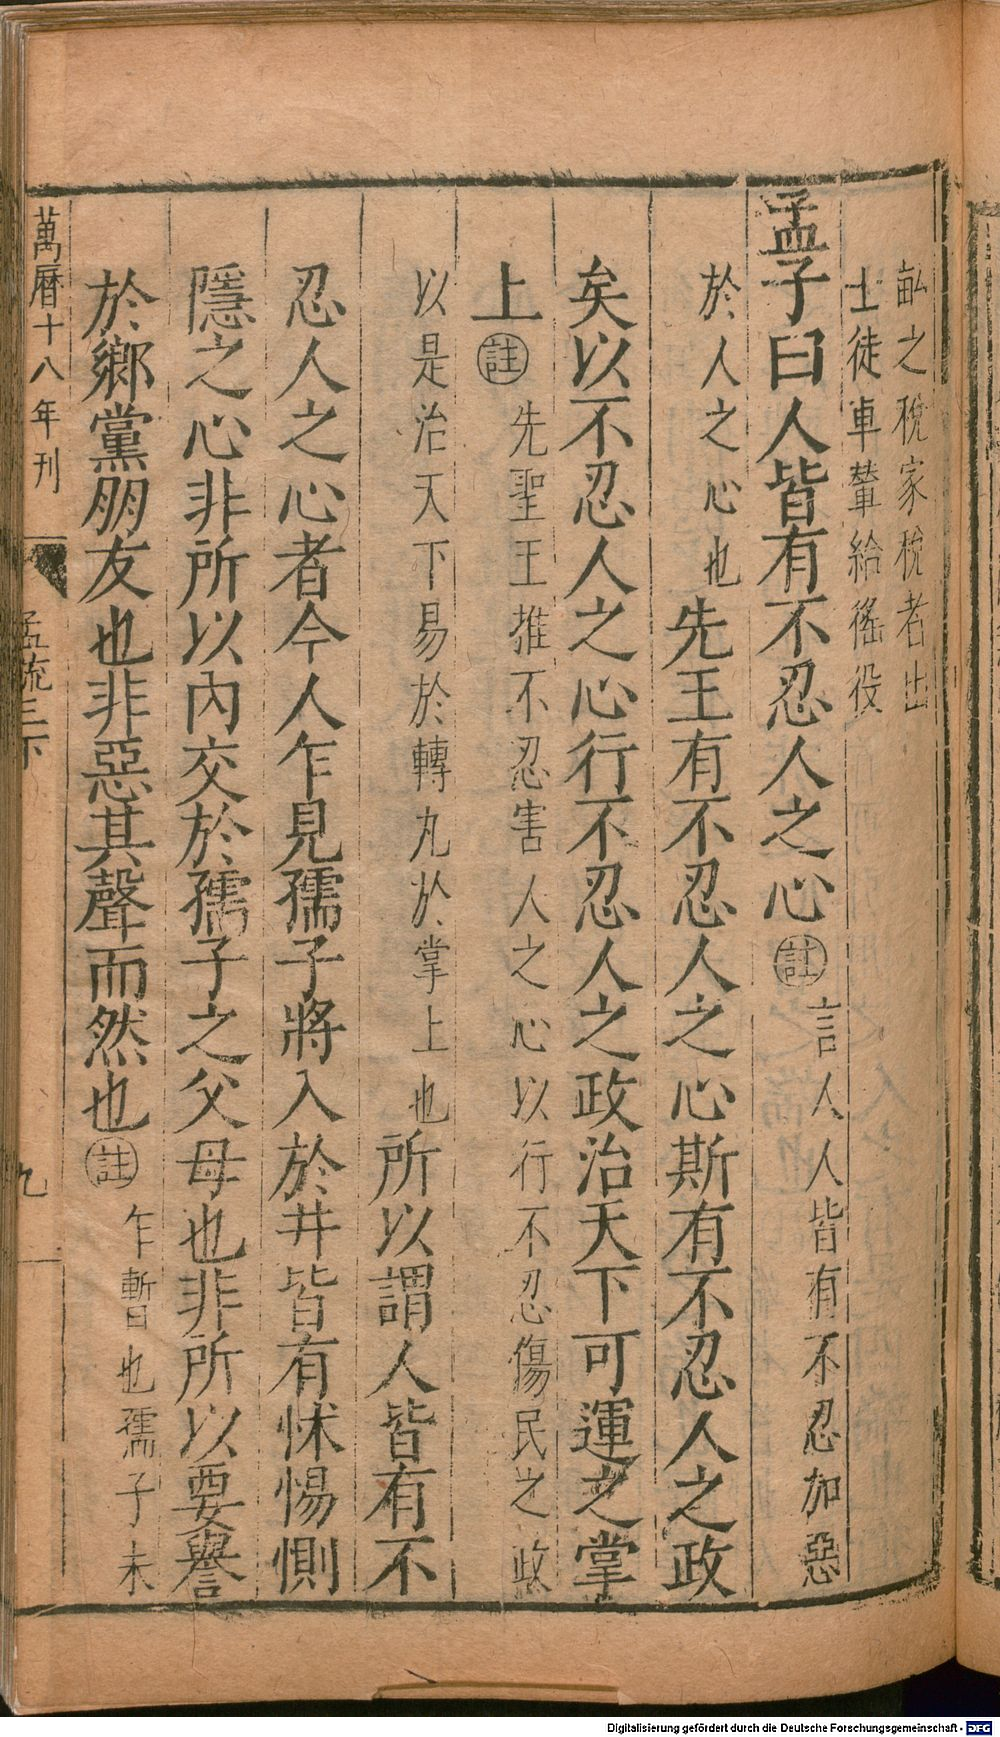 畝之稅家稅者出
士徒車輦給徭役
孟子曰人皆有不忍人之心註言人人皆有不忍加惡
於人之心也先王有不忍人之心斯有不忍人之政
矣以不忍人之心行不忍人之政治天下可運之掌
上註先聖王推不忍害人之心以行不忍傷民之政
以是治天下易於轉丸於掌上也所以謂人皆有不
忍人之心者今人乍見孺子將入於井皆有怵惕惻
隱之心非所以內交於孺子之父母也非所以要譽
於鄉黨朋友也非惡其聲而然也註乍暫也孺子未
萬曆十八年刊
孟疏三下
九
Digitalisierung gefördert durch die Deutsche Forschungsgemeinschaft - DFG